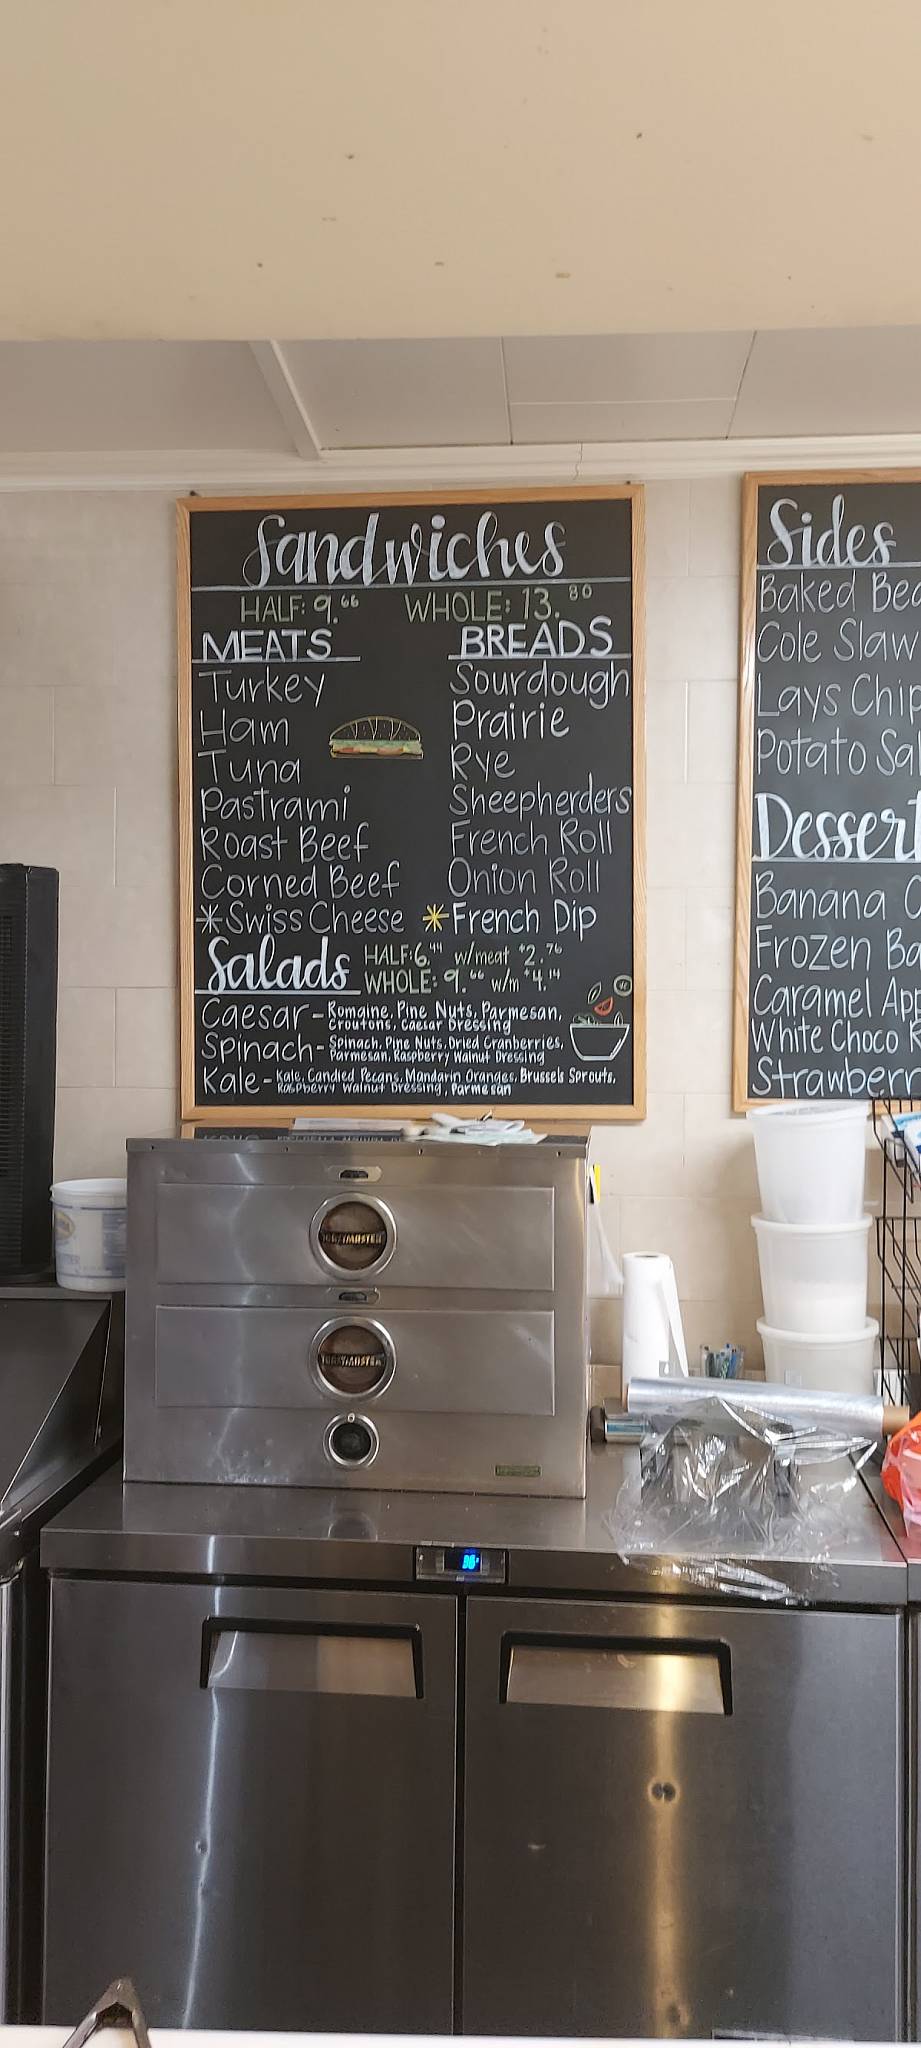 Sandwiches
HALF: 9.66 WHOLE: 13.80
MEATS
Turkey
Ham
Tuna
Pastrami
Roast Beef
Corned Beef
*Swiss Cheese
BREADS
Sourdough
Prairie
Rye
Sheepherders
French Roll
Onion Roll
*French Dip
Salads
HALF: 6.44 w/meat $2.76
WHOLE: 9.66 w/m $4.14
Caesar - Romaine, Pine Nuts, Parmesan,
Croutons, Caesar Dressing
Spinach - Spinach, Pine Nuts, Dried Cranberries,
Parmesan, Raspberry Walnut Dressing
Kale - Kale, Candied Pecans, Mandarin Oranges, Brussels Sprouts,
Raspberry Walnut Dressing, Parmesan
Sides
Baked Bea
Cole Slaw
Lays Chip
Potato Sal
Dessert
Banana C
Frozen Ba
Caramel App
White Choco R
Strawberr
TOASTMASTER
TOASTMASTER